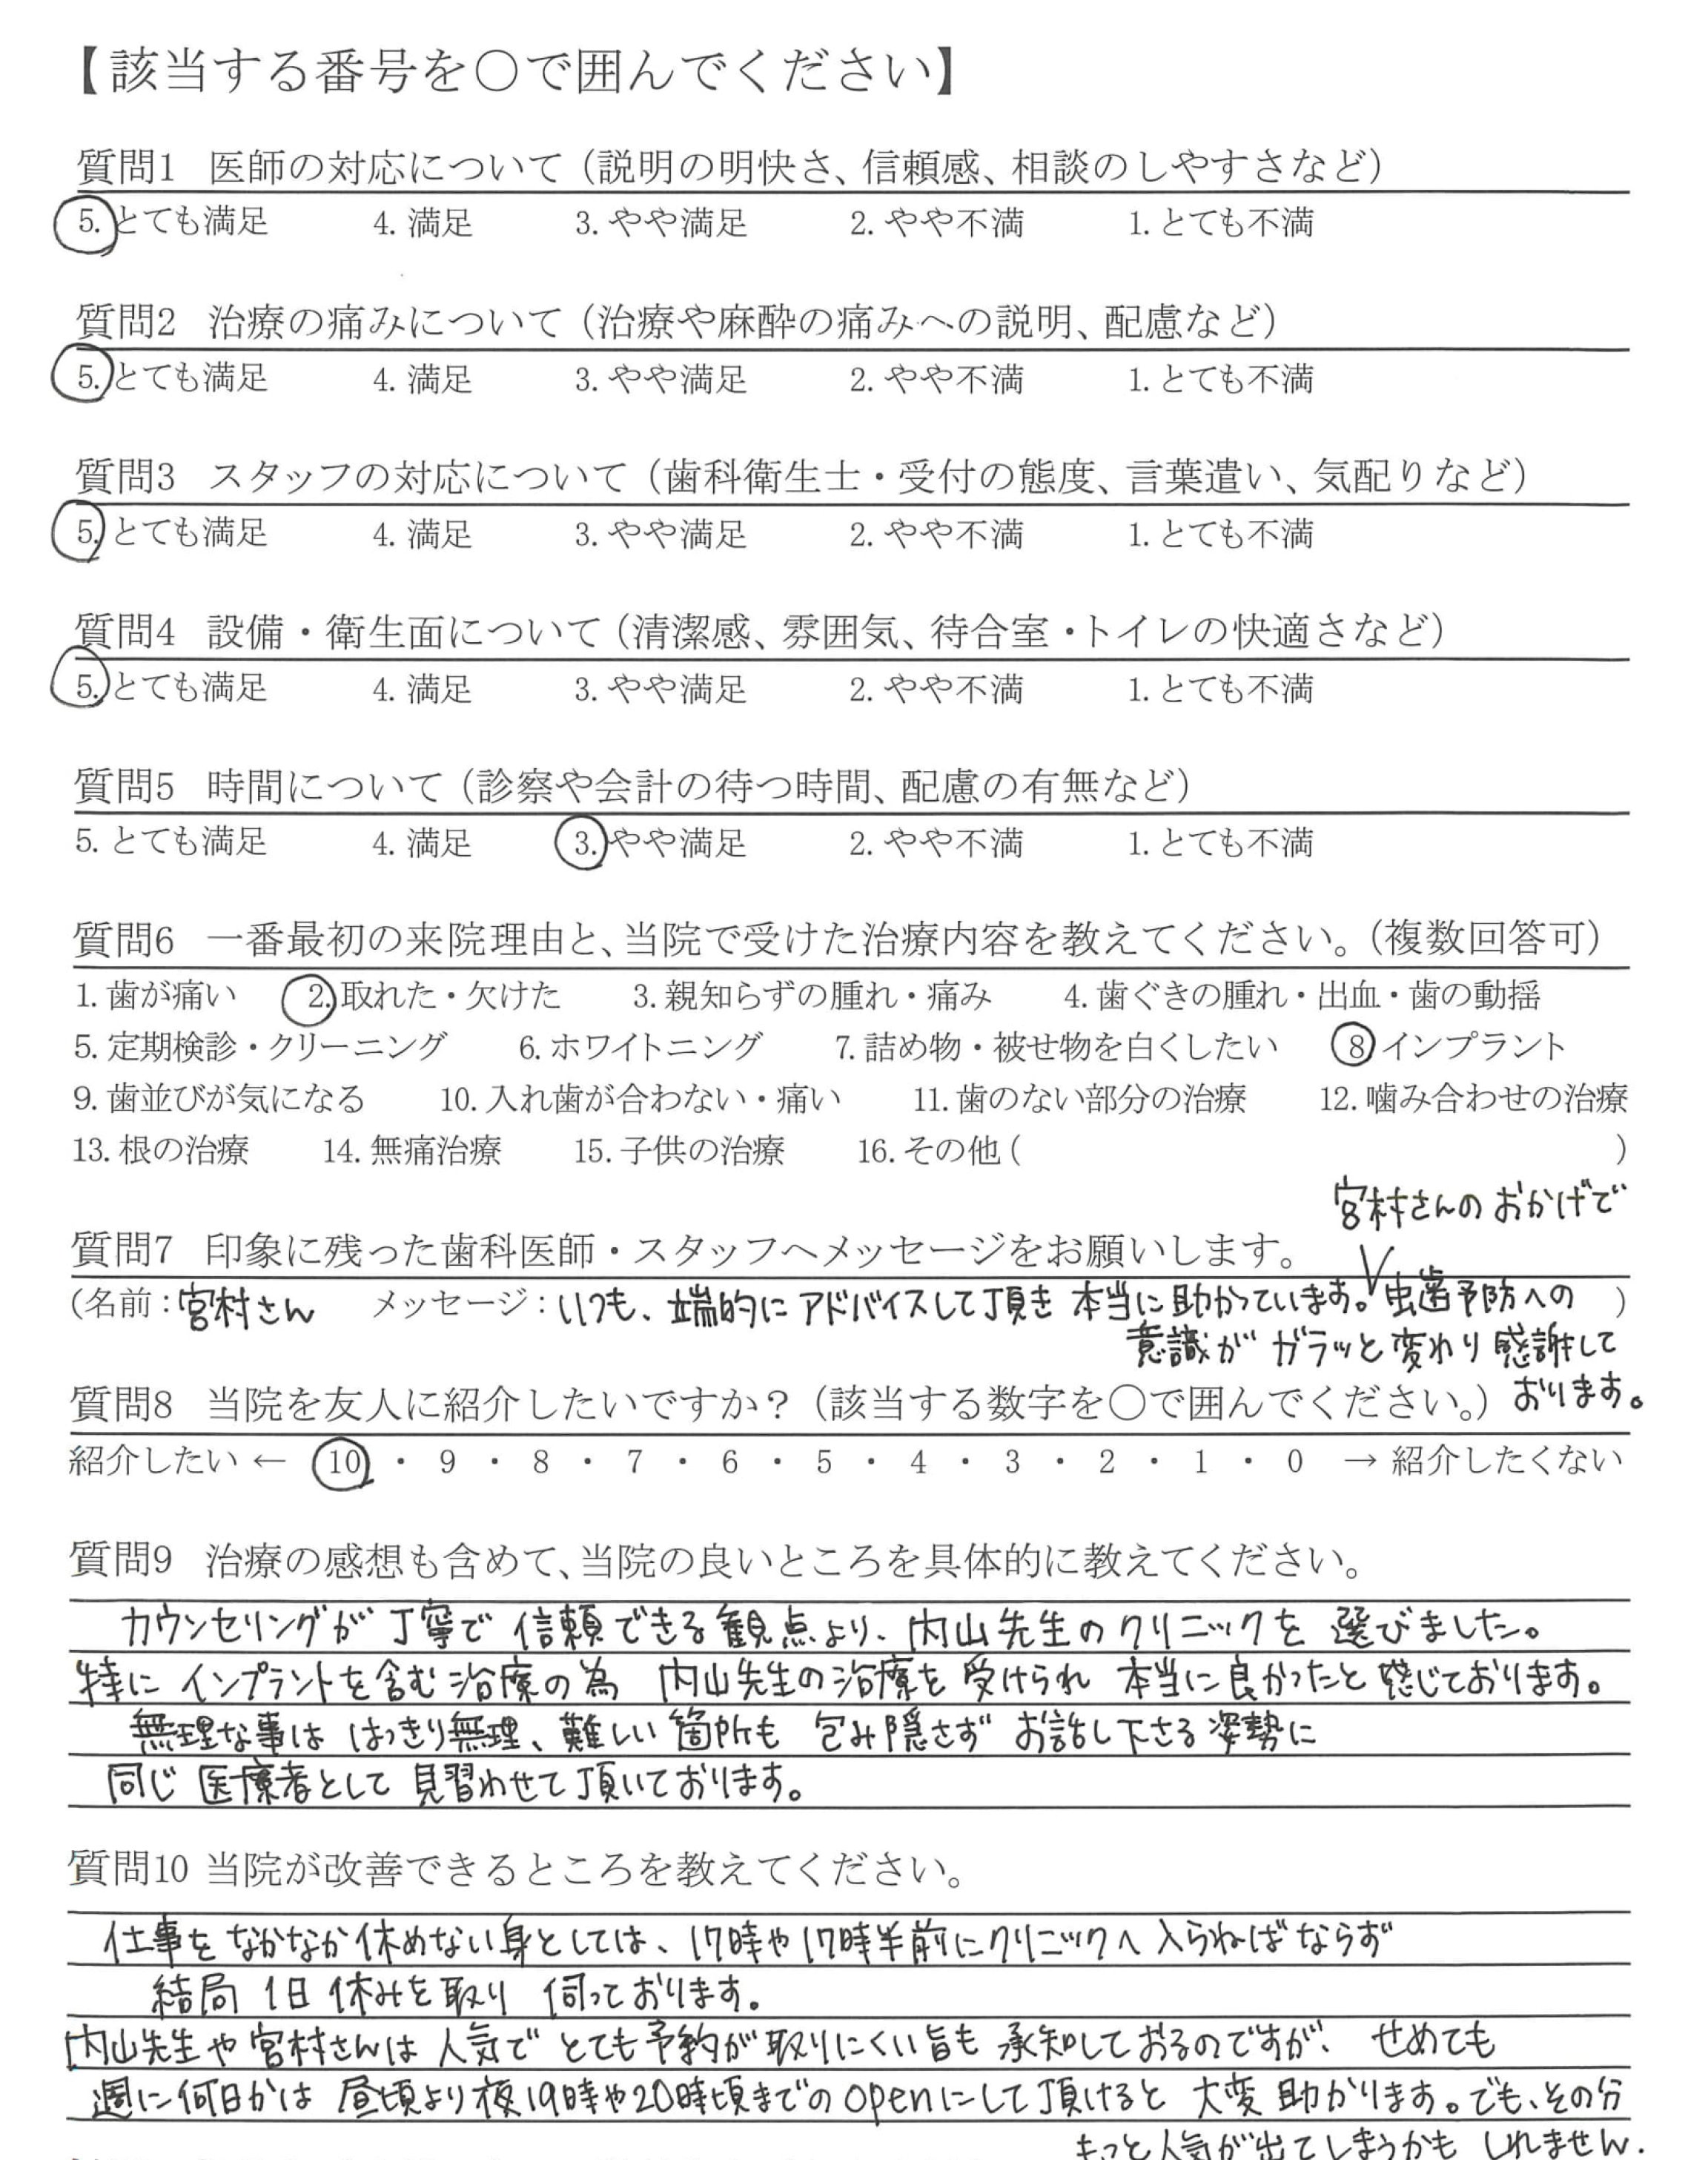 【該当する番号を〇で囲んでください】
質問1 医師の対応について（説明の明快さ、信頼感、相談のしやすさなど）
5. とても満足 4. 満足 3. やや満足 2. やや不満 1. とても不満
質問2 治療の痛みについて（治療や麻酔の痛みへの説明、配慮など）
5. とても満足 4. 満足 3. やや満足 2. やや不満 1. とても不満
質問3 スタッフの対応について（歯科衛生士・受付の態度、言葉遣い、気配りなど）
5. とても満足 4. 満足 3. やや満足 2. やや不満 1. とても不満
質問4 設備・衛生面について（清潔感、雰囲気、待合室・トイレの快適さなど）
5. とても満足 4. 満足 3. やや満足 2. やや不満 1. とても不満
質問5 時間について（診察や会計の待つ時間、配慮の有無など）
5. とても満足 4. 満足 3. やや満足 2. やや不満 1. とても不満
質問6 一番最初の来院理由と、当院で受けた治療内容を教えてください。（複数回答可）
1. 歯が痛い 2. 取れた・欠けた 3. 親知らずの腫れ・痛み 4. 歯ぐきの腫れ・出血・歯の動揺
5. 定期検診・クリーニング 6. ホワイトニング 7. 詰め物・被せ物を白くしたい 8 インプラント
9. 歯並びが気になる 10. 入れ歯が合わない・痛い 11. 歯のない部分の治療 12. 噛み合わせの治療
13. 根の治療 14. 無痛治療 15. 子供の治療 16. その他（ ）
宮村さんのおかげで
質問7 印象に残った歯科医師・スタッフへメッセージをお願いします。
（名前：宮村さん メッセージ：いつも、端的にアドバイスして頂き 本当に助かっています。虫歯予防への ）
意識が ガラッと変わり感謝して
おります。
質問8 当院を友人に紹介したいですか？（該当する数字を〇で囲んでください。）
紹介したい ← 10 ・ 9 ・ 8 ・ 7 ・ 6 ・ 5 ・ 4 ・ 3 ・ 2 ・ 1 ・ 0 → 紹介したくない
質問9 治療の感想も含めて、当院の良いところを具体的に教えてください。
カウンセリングが丁寧で 信頼できる観点より、内山先生のクリニックを 選びました。
特に インプラントを含む治療の為 内山先生の治療を 受けられ 本当に良かったと感じております。
無理な事は はっきり無理、難しい箇所も 包み隠さず お話し下さる姿勢に
同じ 医療者として 見習わせて頂いております。
質問10 当院が改善できるところを教えてください。
仕事をなかなか休めない身としては、17時や17時半前にクリニックへ入らねばならず
結局 1日 休みを取り 伺っております。
内山先生や宮村さんは 人気で とても予約が取りにくい旨も 承知しておるのですが、 せめても
週に何日かは 昼頃より夜19時や20時頃までのopenにして頂けると 大変 助かります。でも、その分
もっと人気が出てしまうかも しれません.